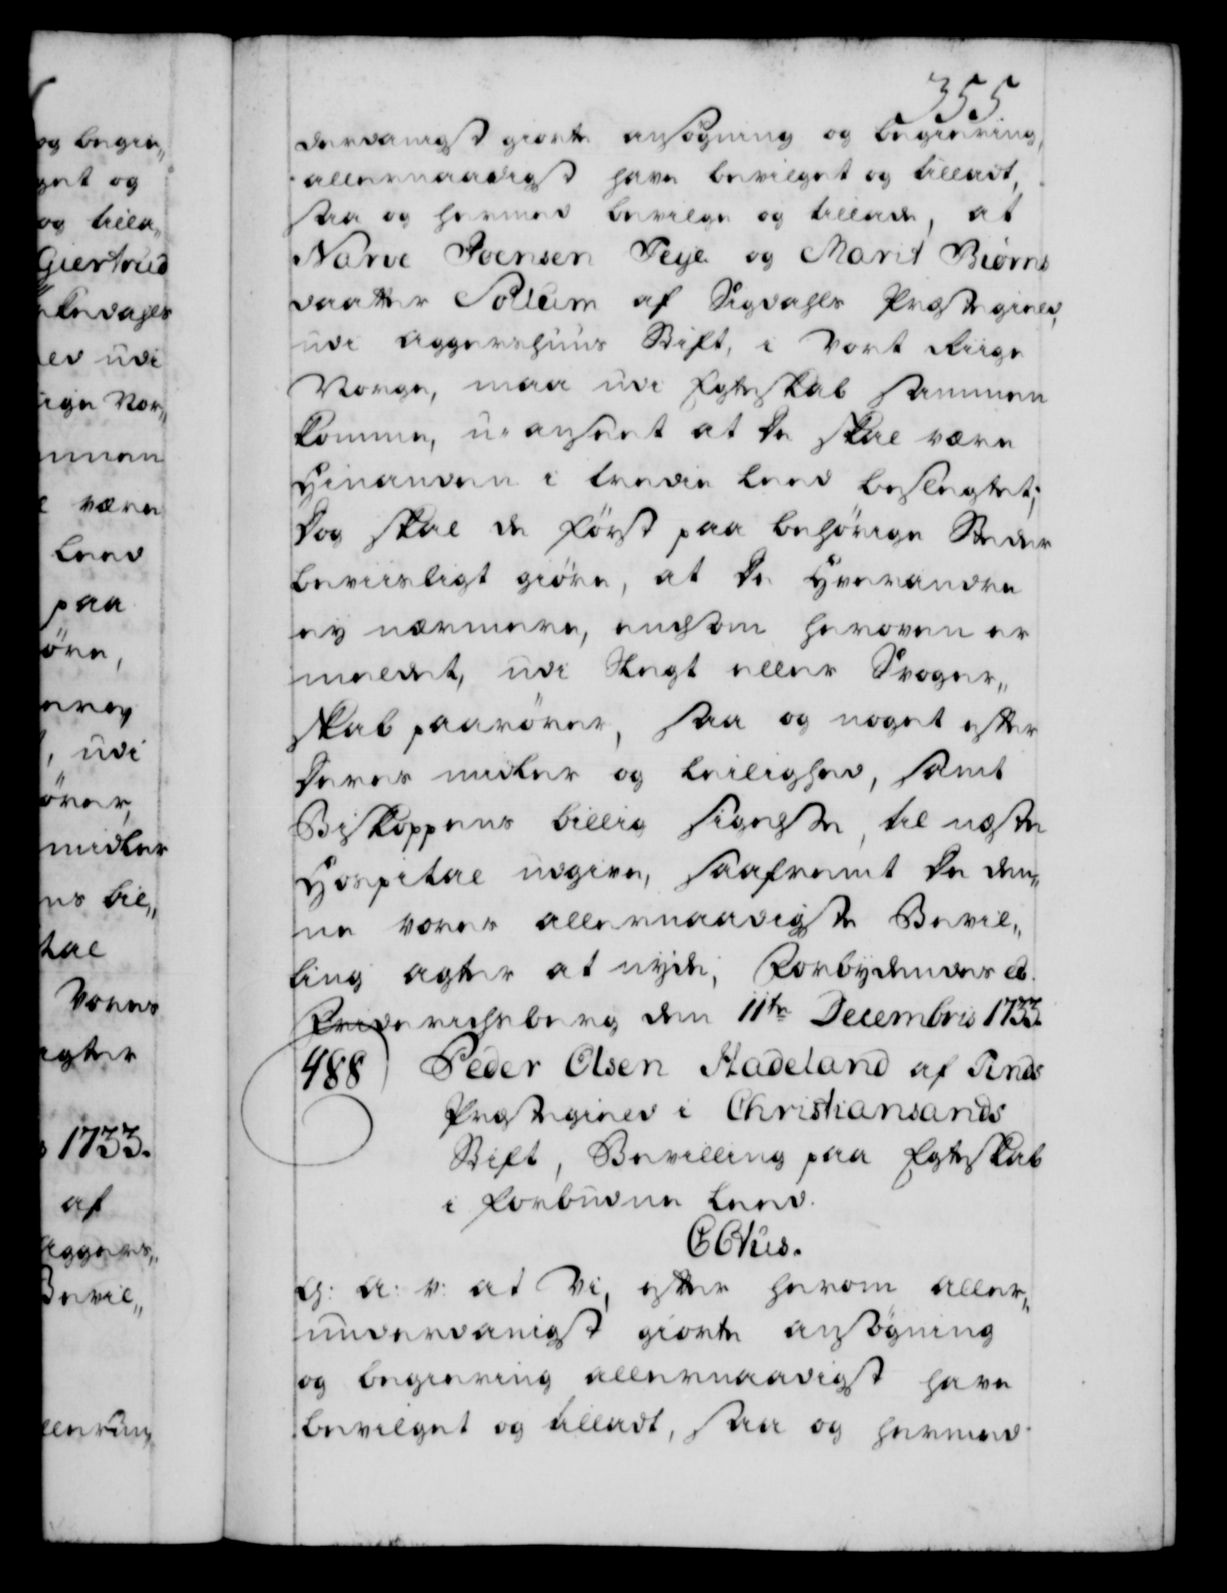 355
derdanigst giorte ansøgning og begiering,
allernaadigst have bevilget og tilladt,
saa og hermed bevilge og tillade, at
Narve Joensen Teye og Marit Biørns
daatter Sollum af Sigdahls Præstegield,
udi Aggershuus Stift, i Vort Riige
Norge, maa udi Egteskab sammen
komme, u-anseet at de skal være
Hinanden i tredie leed beslegtet;
Dog skal de først paa behörige Steder
beviisligt giöre, at de Hverandre
ey nærmere, end som heroven er
meldet, udi Slegt eller Svoger„
skab paarörer, saa og noget efter
deres midler og leilighed, samt
Biskoppens billig sigelse, til næste
Hospital udgive, saafremt de den„
ne vores allernaadigste Bevil„
ling agter at nyde; Forbydendes &.
Friderichsberg den 11te Decembris 1733.
488) Peder Olsen Hadeland af Tinds
Præstegield i Christiansands
Stift, Bevilling paa Egteskab
i forbudne leed.
C6tus.
G: A: V: at Vi, efter herom aller„
underdanigst giorte ansögning
og begiering allernaadigst have
bevilget og tilladt, saa og hermed
og begie„
get og
og tilla„
Giertrud
led udi
ige Nor„
mmen
være
leed
paa
öre,
, udi
örer,
midler
ns bil„
tal
Vores
agter
1733.
af
Aggers„
Bevil„